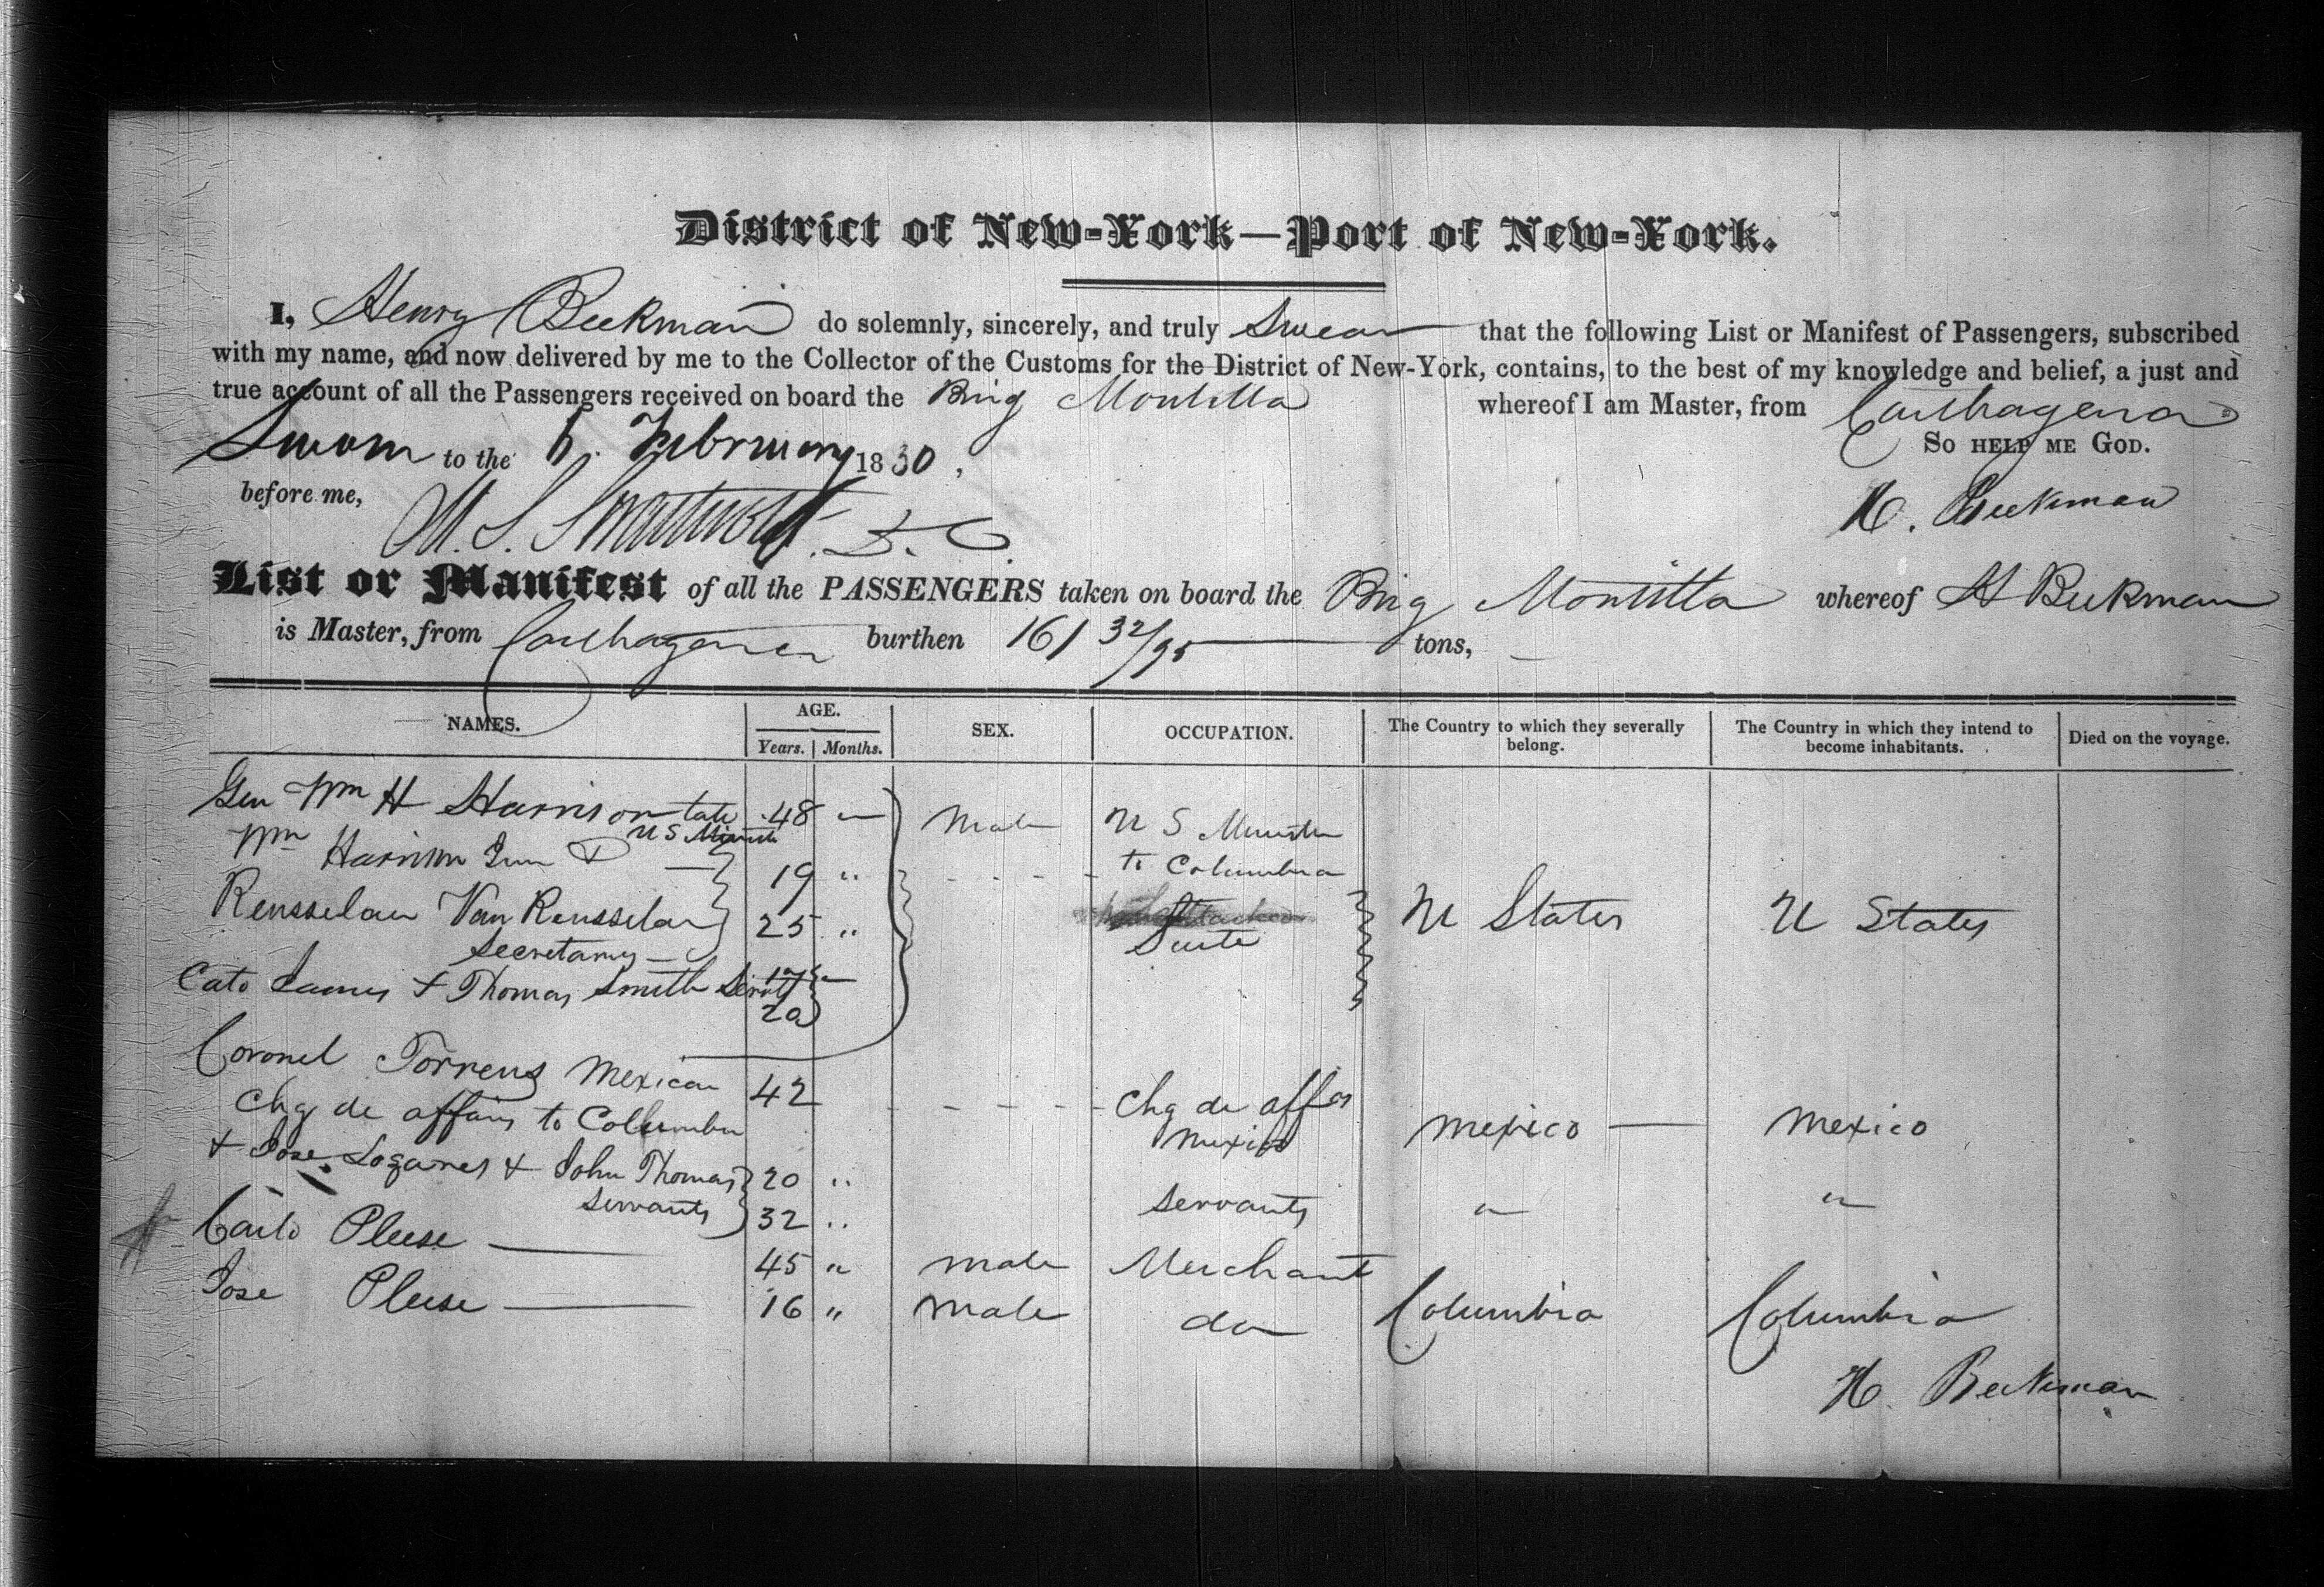 District of New-York—Port of New-York.
I, Henry Beekman do solemnly, sincerely, and truly Swear that the following List or Manifest of Passengers, subscribed
with my name, and now delivered by me to the Collector of the Customs for the District of New-York, contains, to the best of my knowledge and belief, a just and
true account of all the Passengers received on board the Brig Montilla whereof I am Master, from Carthagena
Sworn to the February 1830, So help me God.
before me,
H. Beekman
M. S. Swartwout. D. C.
List or Manifest of all the PASSENGERS taken on board the Brig Montilla whereof H Beekman
is Master, from Carthagena burthen 161 32/95 tons,
NAMES. AGE. Years. Months. SEX. OCCUPATION. The Country to which they severally belong. The Country in which they intend to become inhabitants. Died on the voyage.
Gen Wm H Harrison late 48 " Male U S Minister
U S Minist
Wm Harrison Jun & 19 " to Columbia
Rensselaer Van Rensselar 25 " Suite U States U States
Secretary
Cato James & Thomas Smith Servts 17 "
20
Coronel Torrens Mexican 42 Chg de affrs Mexico Mexico
Chg de affairs to Columbia Mexico
& Jose Logares & John Thomas 20 "
servants 32 " servants " "
Carlo Pleese 45 " Male Merchant
Jose Pleese 16 " Male do Columbia Columbia
H. Beekman